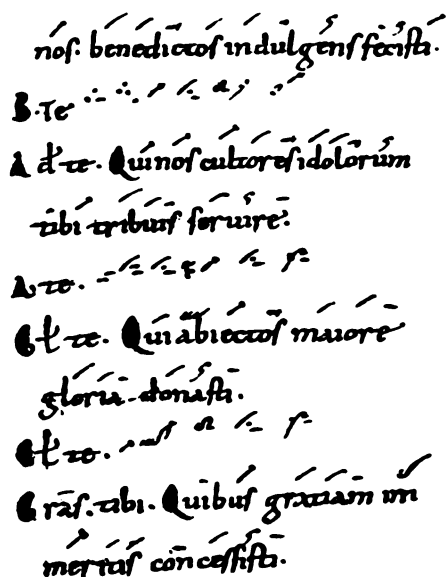 nos. benedictos indulgens fecisti.
B. Te
Ad te. Qui nos cultores idolorum
tibi tribuis seruire.
A te.
Gl te. Qui abiectos maiorē
gloria donasti.
Gl te.
Gras. tibi. Quibus gratiam im
meritis concessisti.